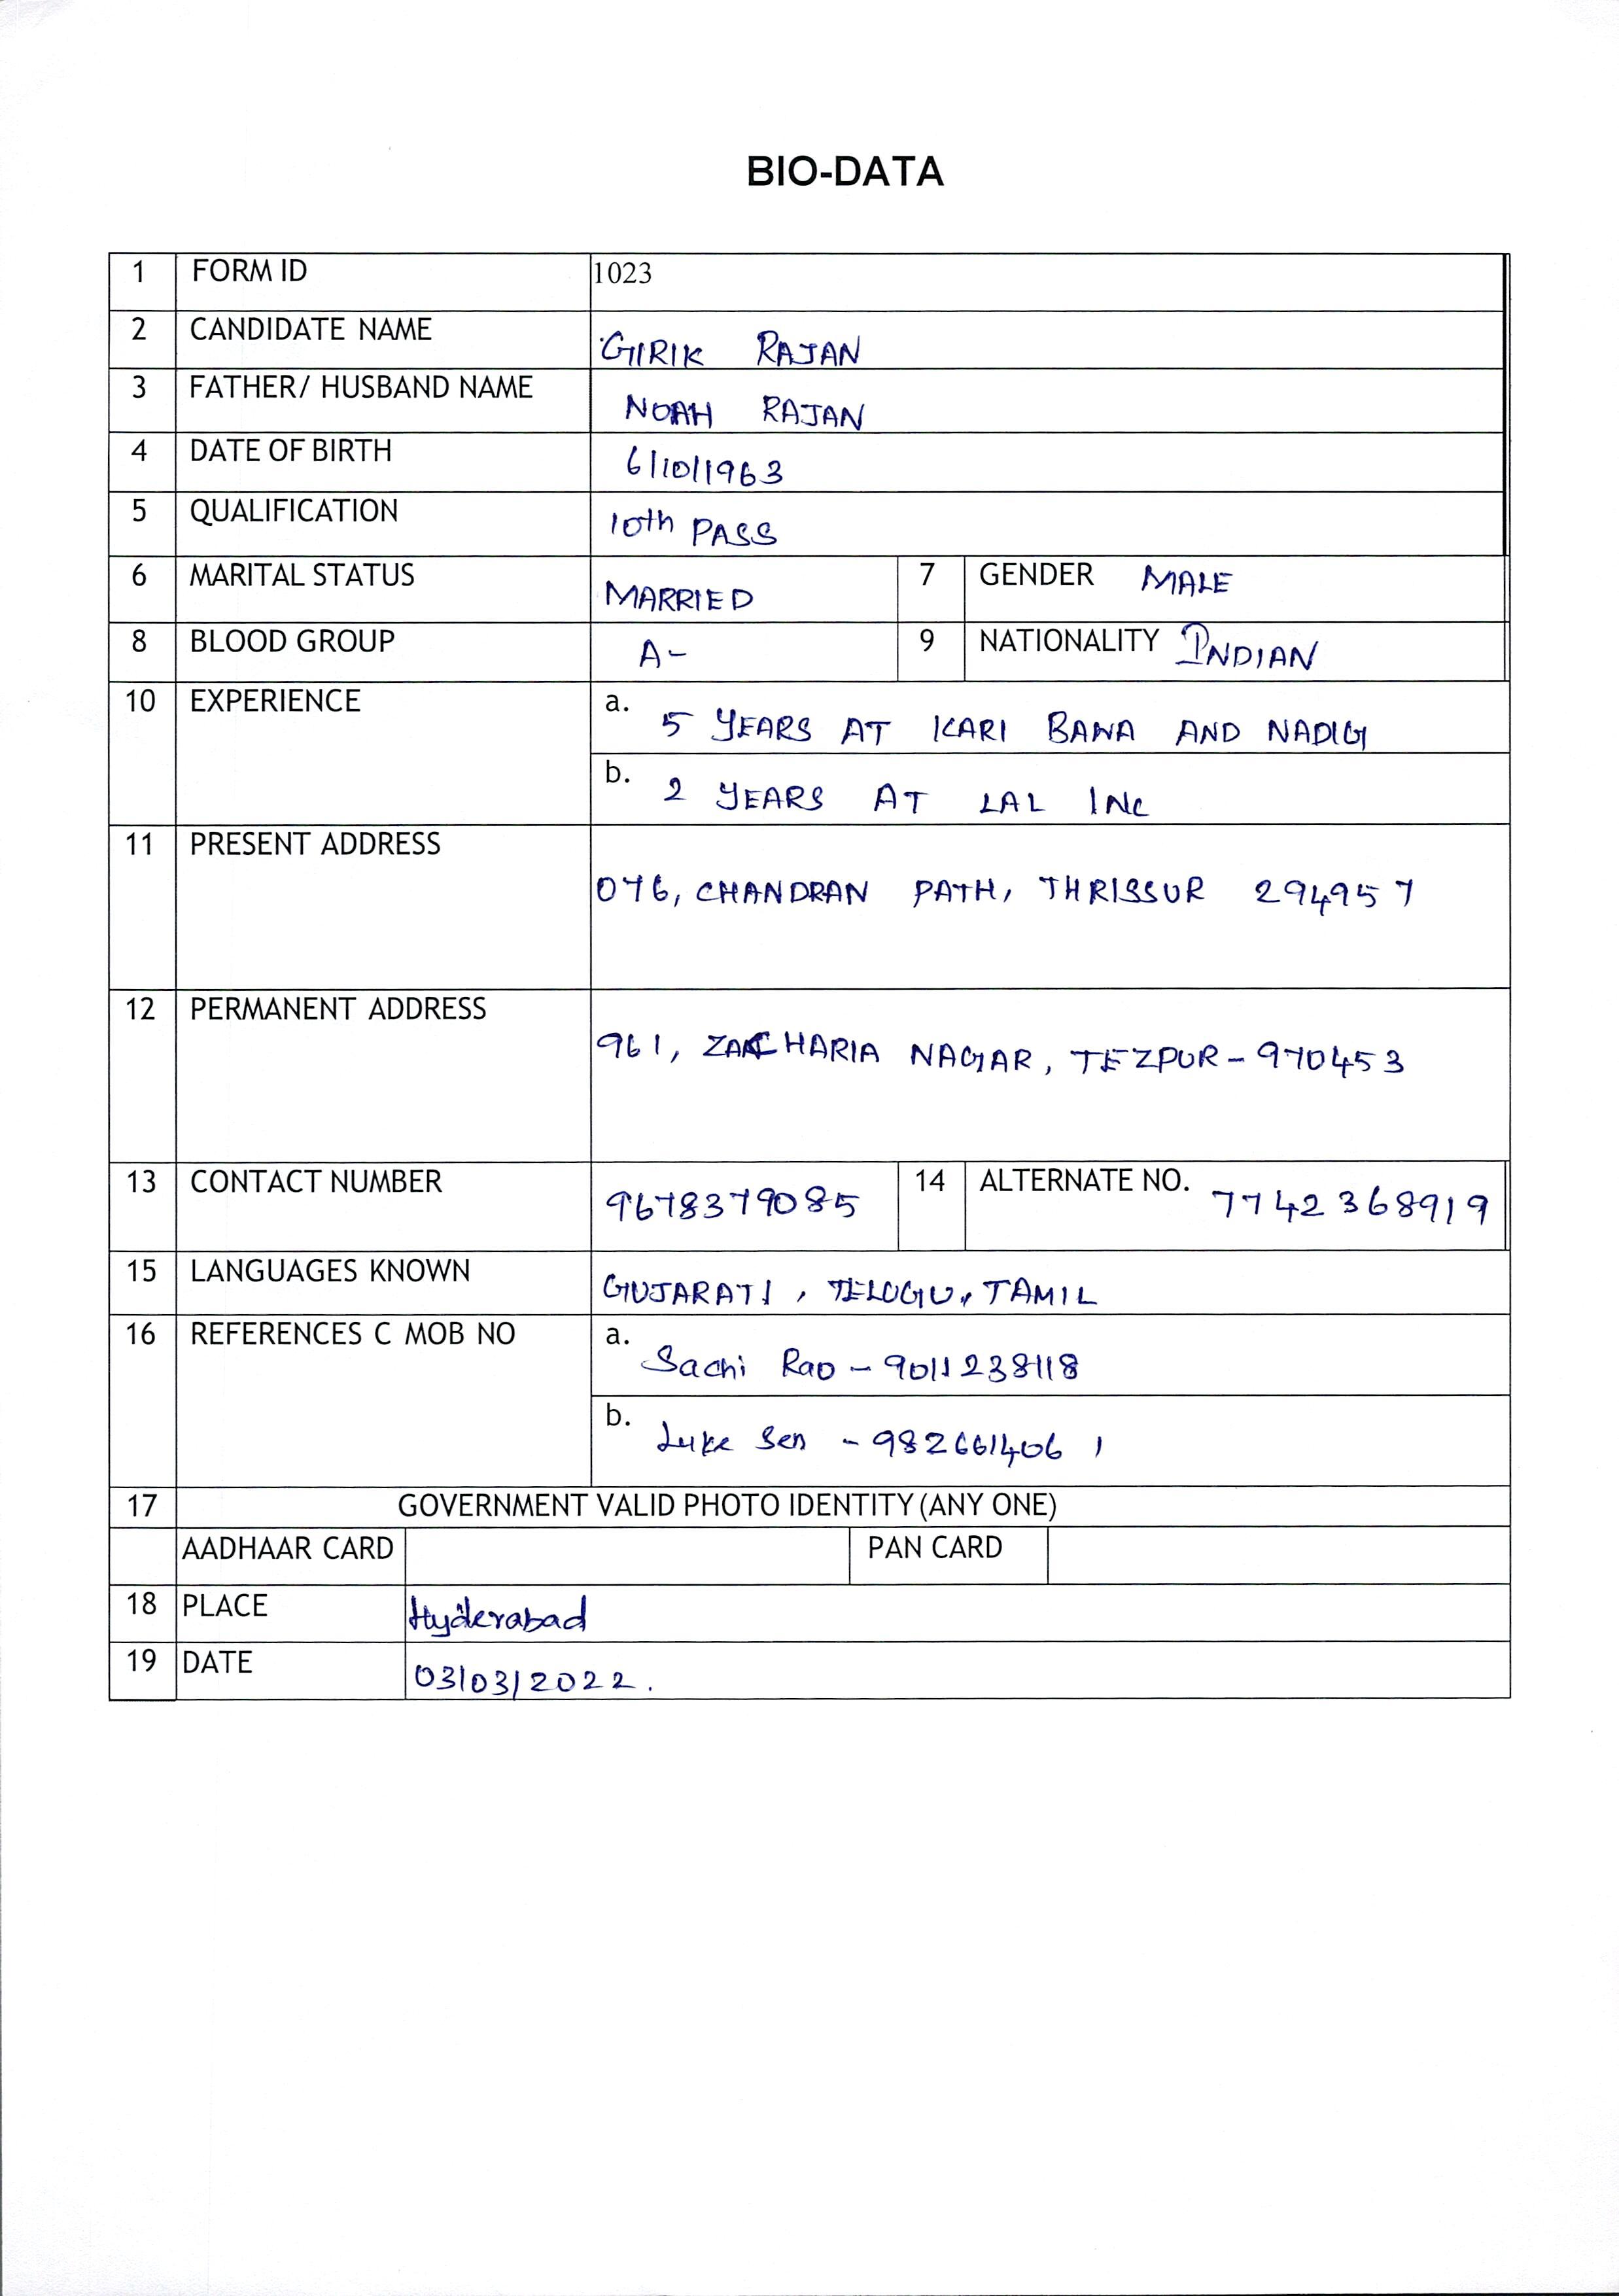 BIO-DATA
1 FORM ID 1023
2 CANDIDATE NAME GIRIK RAJAN
3 FATHER/ HUSBAND NAME NOAH RAJAN
4 DATE OF BIRTH 6/10/1963
5 QUALIFICATION 10th PASS
6 MARITAL STATUS MARRIED 7 GENDER MALE
8 BLOOD GROUP A- 9 NATIONALITY INDIAN
10 EXPERIENCE a. 5 YEARS AT KARI BAWA AND NADIG
b. 2 YEARS AT LAL INC
11 PRESENT ADDRESS
076, CHANDRAN PATH, THRISSUR 294957
12 PERMANENT ADDRESS
961, ZACHARIA NAGAR, TEZPUR - 970453
13 CONTACT NUMBER 9678379085 14 ALTERNATE NO. 7742368919
15 LANGUAGES KNOWN GUJARATI, TELOGU, TAMIL
16 REFERENCES C MOB NO a. Sachi Rao - 9011238118
b. Luke Sen - 9826614061
17 GOVERNMENT VALID PHOTO IDENTITY (ANY ONE)
AADHAAR CARD PAN CARD
18 PLACE Hyderabad
19 DATE 03/03/2022.